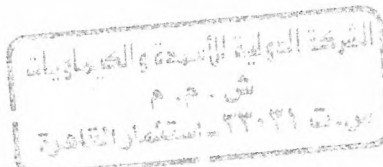 الشركة الدولية للأسمدة والكيماويات
ش . م . م
س.ت ٢٣٠٣١ - استثمار القاهرة